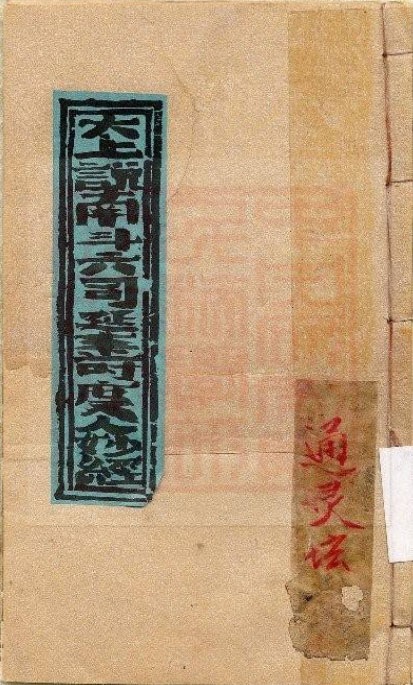 太上說南斗六司延壽度人妙經
通灵坛